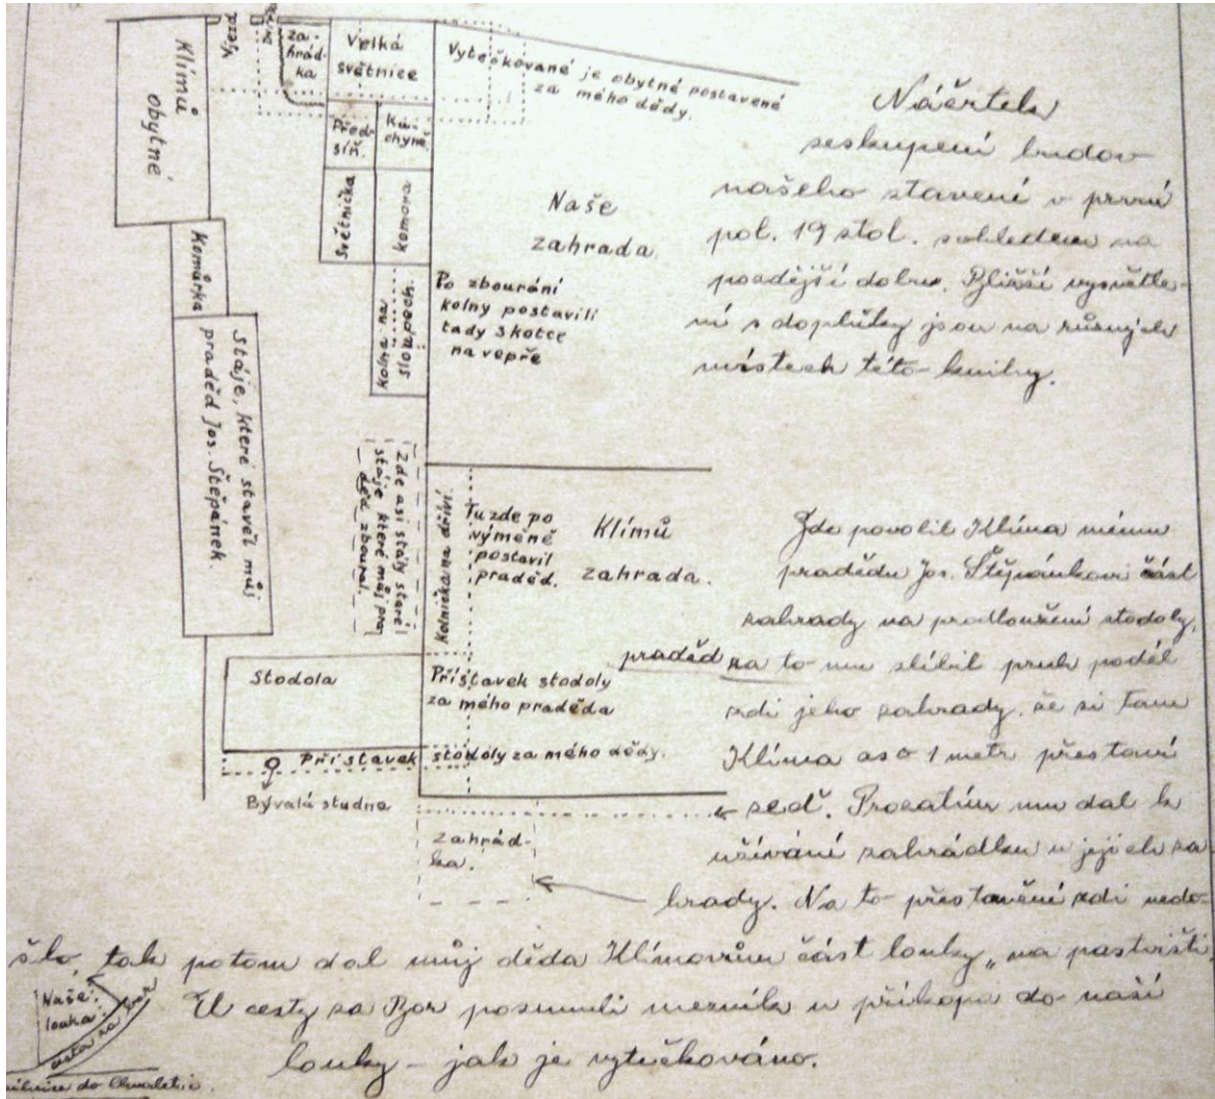 Klímů
obytné
vjezd
za-
hrád-
ka
Velká
světnice
Vytečkované je obytné postavené
za mého dědy.
Před-
síň.
Ku-
chyně.
Světnička
komora
Naše
zahrada
Komůrka
kolna na
sloupech.
Po zbourání
kolny postavili
tady 3 kotce
na vepře
Stáje, které stavěl můj
praděd Jos. Štěpánek.
Zde asi stály staré
stáje které můj pra-
děd zboural.
Kolnička na dříví.
Tu zde po
výměně
postavil
praděd.
Klímů
zahrada.
Stodola
Přístavek stodoly
za mého praděda
Přístavek stodoly za mého dědy.
Bývalá studna
zahrád-
ka.
Náčrtek
seskupení budov
našeho stavení v první
pol. 19 stol. s ohledem na
pozdější dobu. Bližší vysvětle-
ní s doplňky jsou na různých
místech této knihy.
Zde povolil Klíma mému
pradědu Jos. Štěpánkovi část
zahrady na prodloužení stodoly,
praděd za to mu slíbil pruh podél
zdi jeho zahrady, že si tam
Klíma aso 1 metr přestaví
zeď. Prozatím mu dal k
užívání zahrádku u jejich za-
hrady. Na to přestavění zdi nedo-
šlo, tak potom dal můj děda Klímovům část louky „na pastvišti.
U cesty za Bor posunuli mezník u příkopa do naší
louky – jak je vytečkováno.
Naše
louka
cesta za Bor
silnice do Chvaletic.